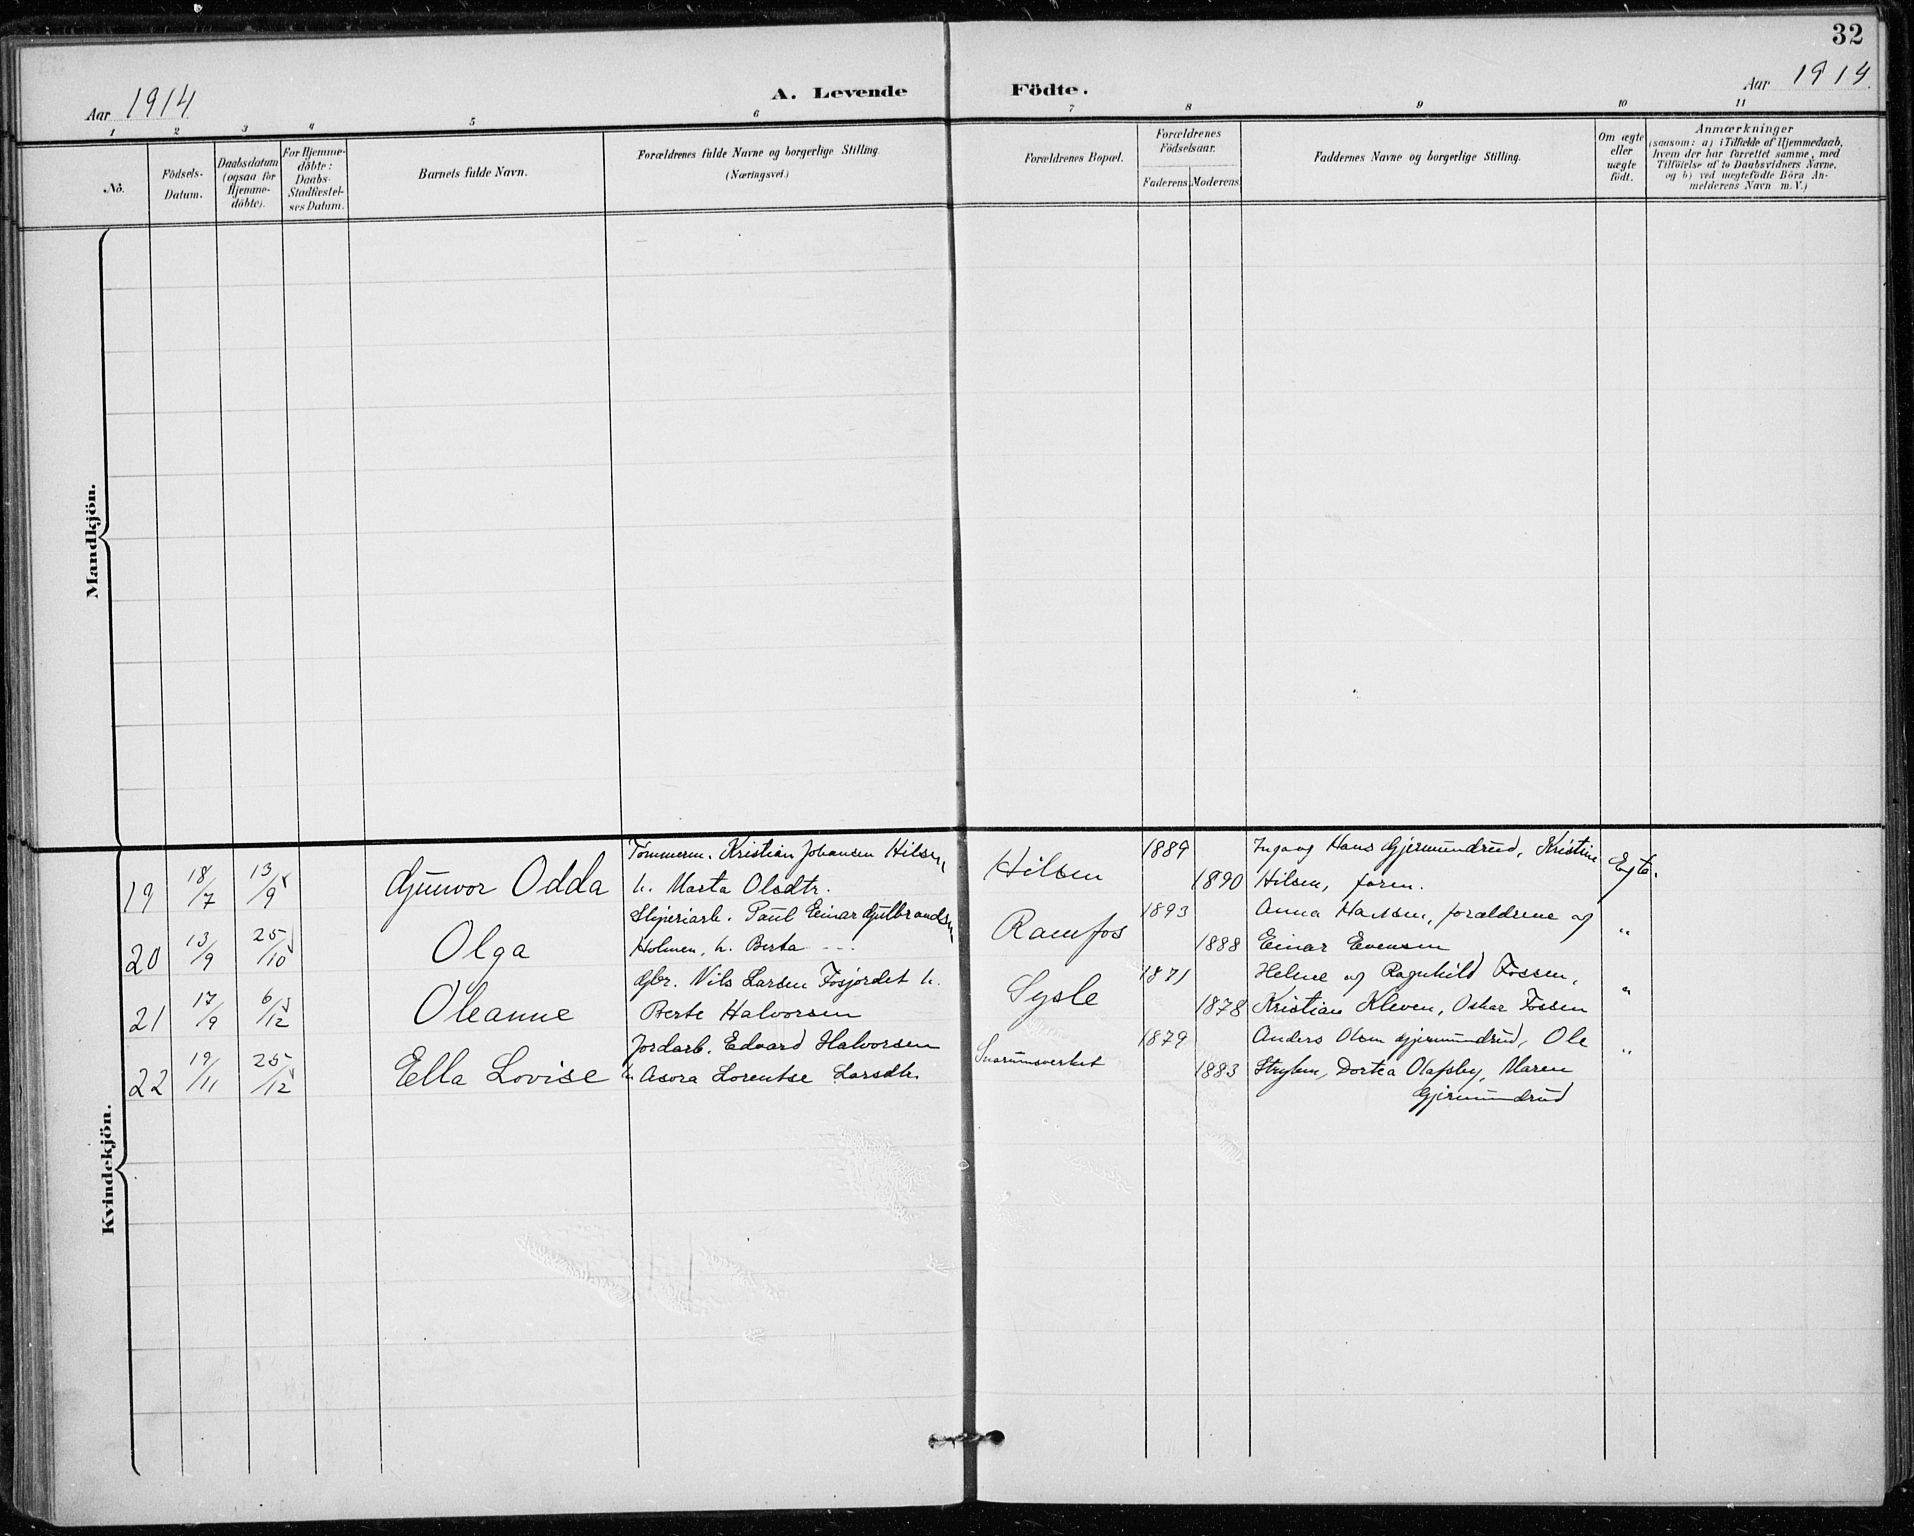 32
Aar 1914
A. Levende Födte.
Aar 1914.
1 2 3 4 5 6 7 8 9 10 11
No.
Födsels-
Datum.
Daabsdatum
(ogsaa for
Hjemme-
döbte).
For Hjemme-
döbte:
Daabs-
Stadfæstel-
ses Datum.
Barnets fulde Navn.
Forældrenes fulde Navne og borgerlige Stilling.
(Næringsvei.)
Forældrenes Bopæl.
Forældrenes
Födselsaar.
Faderens Moderens
Faddernes Navne og borgerlige Stilling.
Om ægte
eller
uægte
födt.
Anmærkninger
(saasom: a) i Tilfælde af Hjemmedaab,
hvem der har forrettet samme, med
Tilföielse af to Daabsvidners Navne,
og b) ved uægtefödte Börn An-
melderens Navn m. V.)
Mandkjön.
Kvindekjön.
19 18/7 13/9 Gunvor Odda
Tömmerm. Kristian Johansen Hilsen,
h. Marta Olsdtr.
Hilsen 1889 1890
Inga og Hans Gjermundrud, Kristine
Hilsen, foren.
Egte.
20 13/9 25/10 Olga
Sliperiarb. Paul Einar Gulbrandsen
Holmen, h. Berta
Ramfos 1893 1888
Anna Hansen, forældrene og
Einar Evensen
"
21 17/9 6/12 Oleanne
Gbr. Nils Larsen Fosjordet h.
Berte Halvorsen
Sysle 1871 1878
Helene og Ragnhild Fossen,
Kristian Kleven, Oskar Fossen
"
22 19/11 25/12 Ella Lovise
Jordarb. Edvard Halvorsen
h. Asora Lorentse Larsdtr.
Snarumsverket 1879 1883
Anders Olsen Gjermundrud, Ole
Dortea Olafsby, Maren
Gjermundrud
"